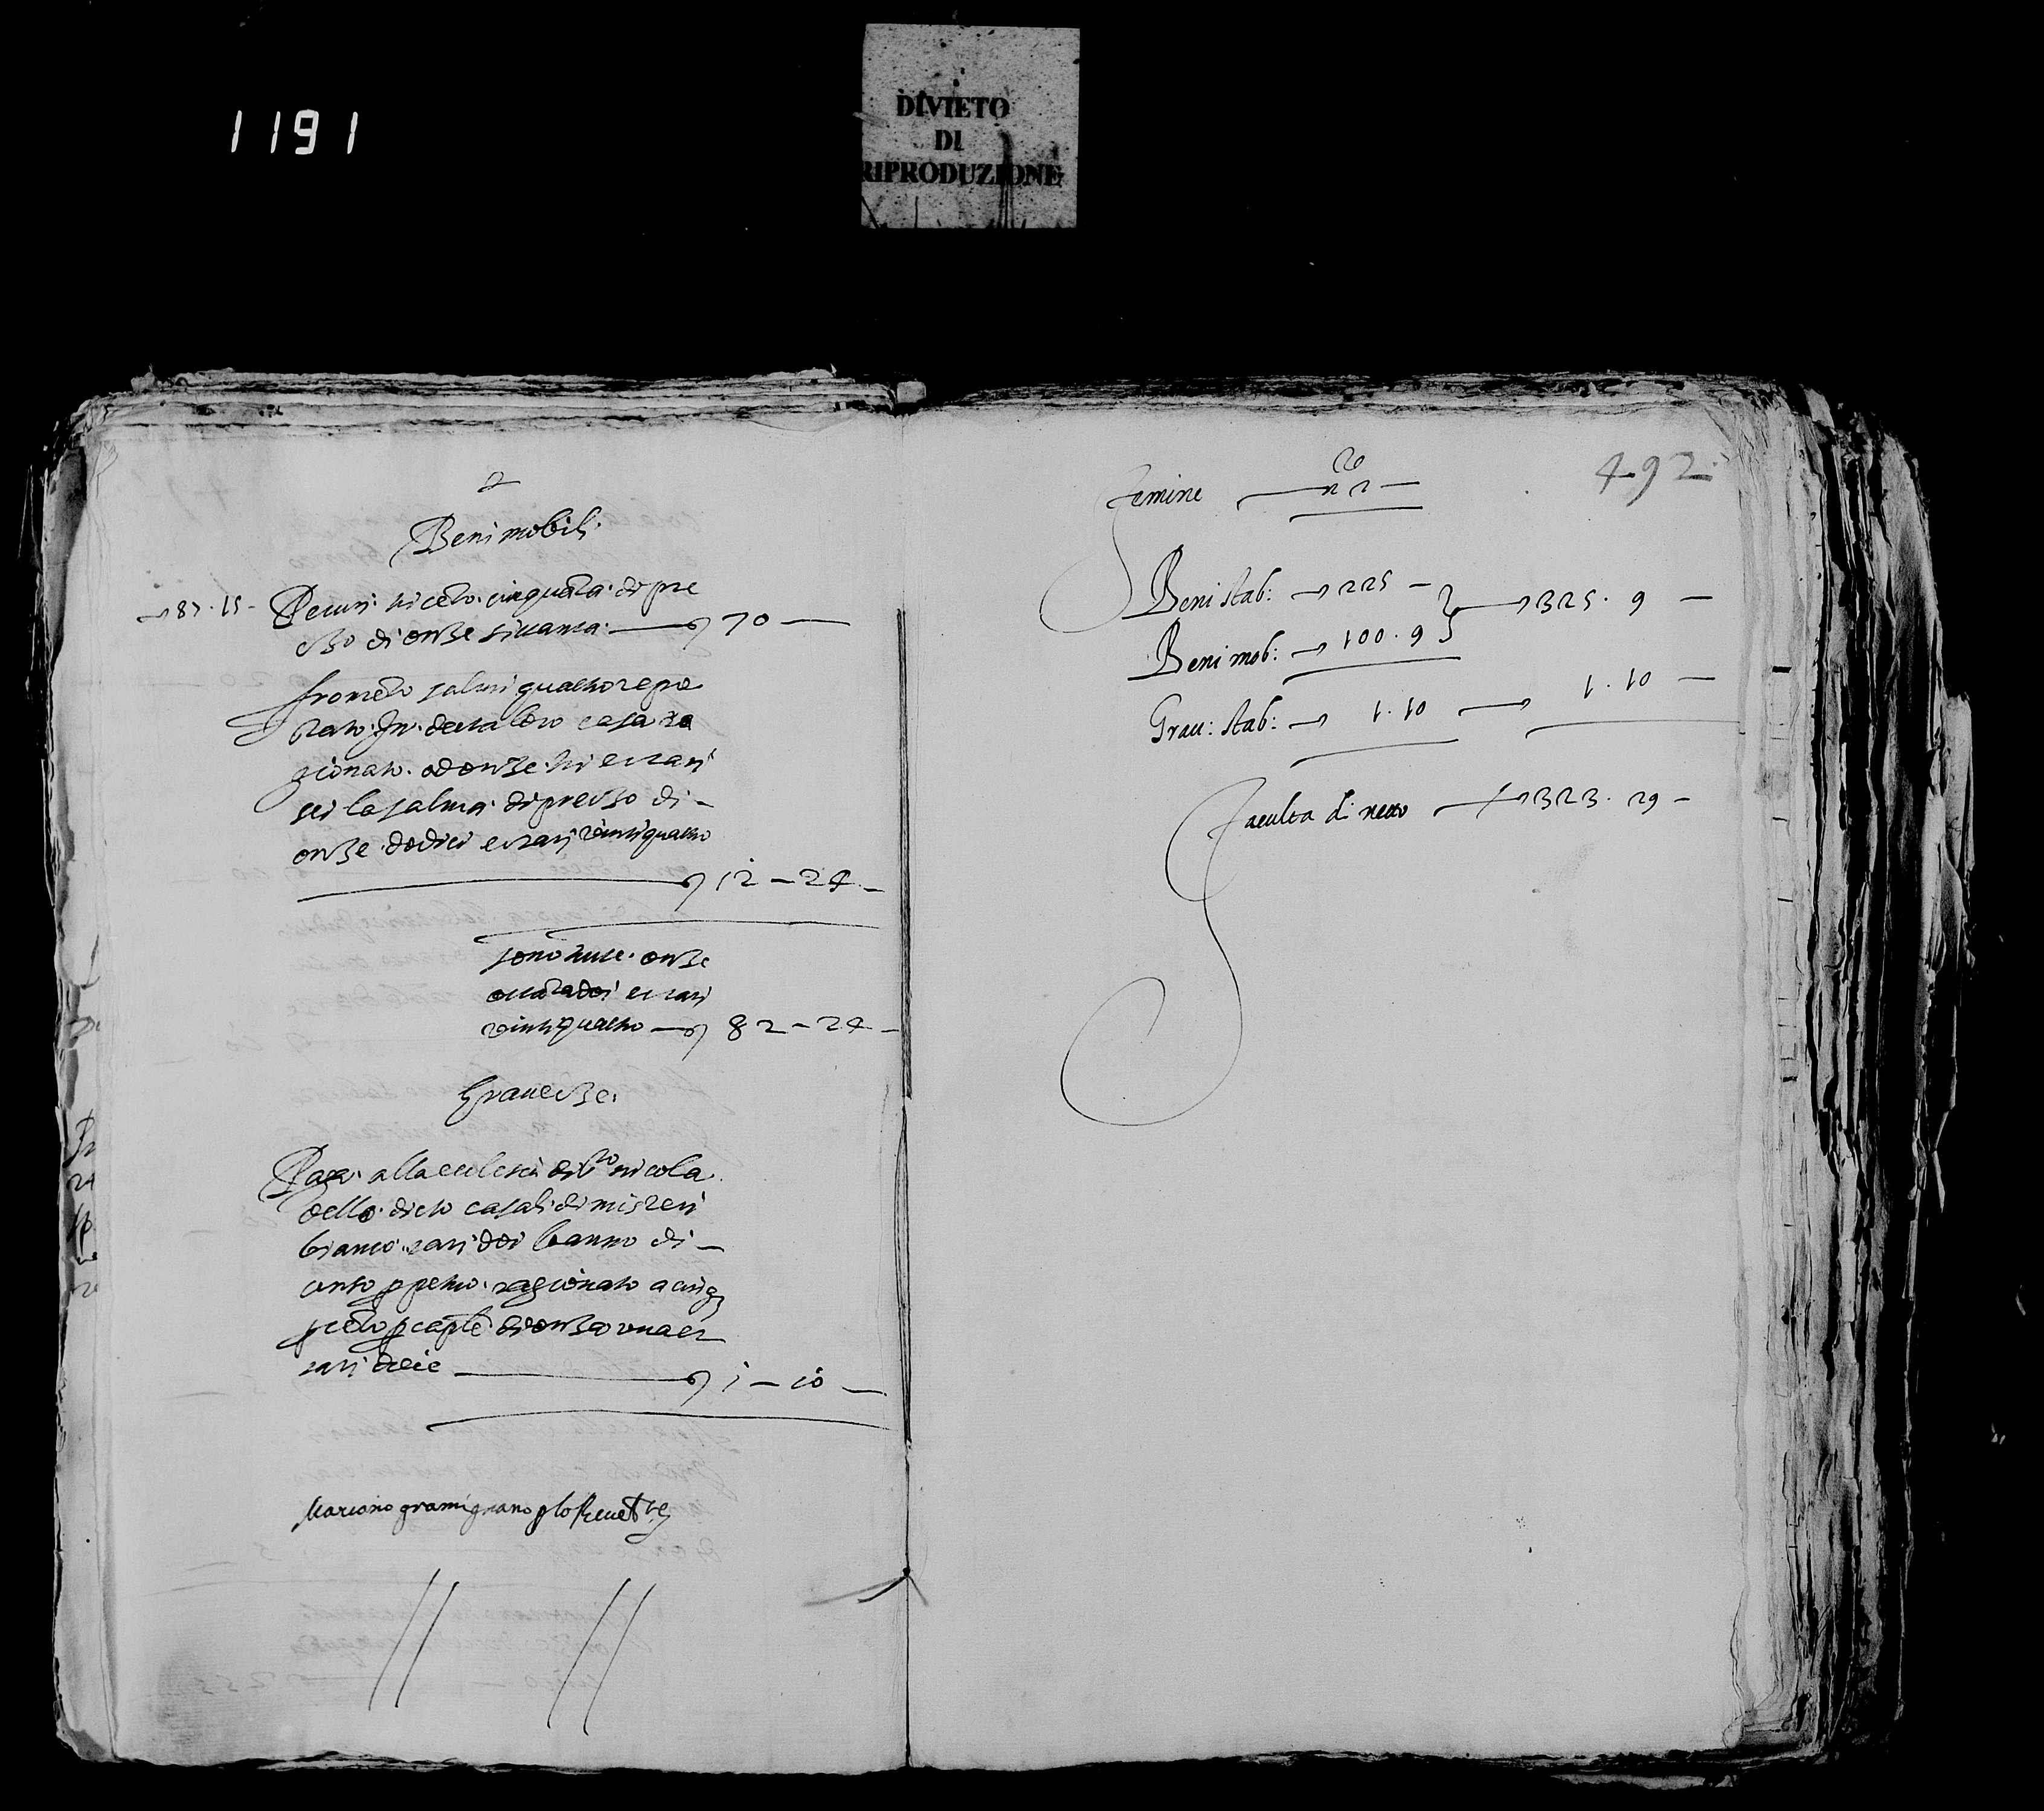 1191
DIVIETO
DI
RIPRODUZIONE
Beni mobili
87.15 - Pecuri ticeto cinquāta di pre
czo di onze sittanta 70 —
fromēto salmi quattro repo
nato In decta loro casa ra
gionato ad onze tri et tarì
sei la salma di preczo di -
onze dodici et tarì vintiquattro
12 - 24 -
sono tucte onze
octātadoi et tarì
vintiquattro 82 - 24 -
Graveczze
Paga alla ecclesia di s.to nicola
dello dicto casali di misteri
bianco tarì doi l'anno di -
censo ppetuo ragionato a cinq
pceto p caple di onza una et
tarì deie 1 - 10 —
Mariano gramignano
492
femine
n 2 —
Beni stab: 225 — 325 . 9 —
Beni mob: 100 . 9
Grav: stab: 1.10 1.10 —
faculta di netto 323 . 29 —